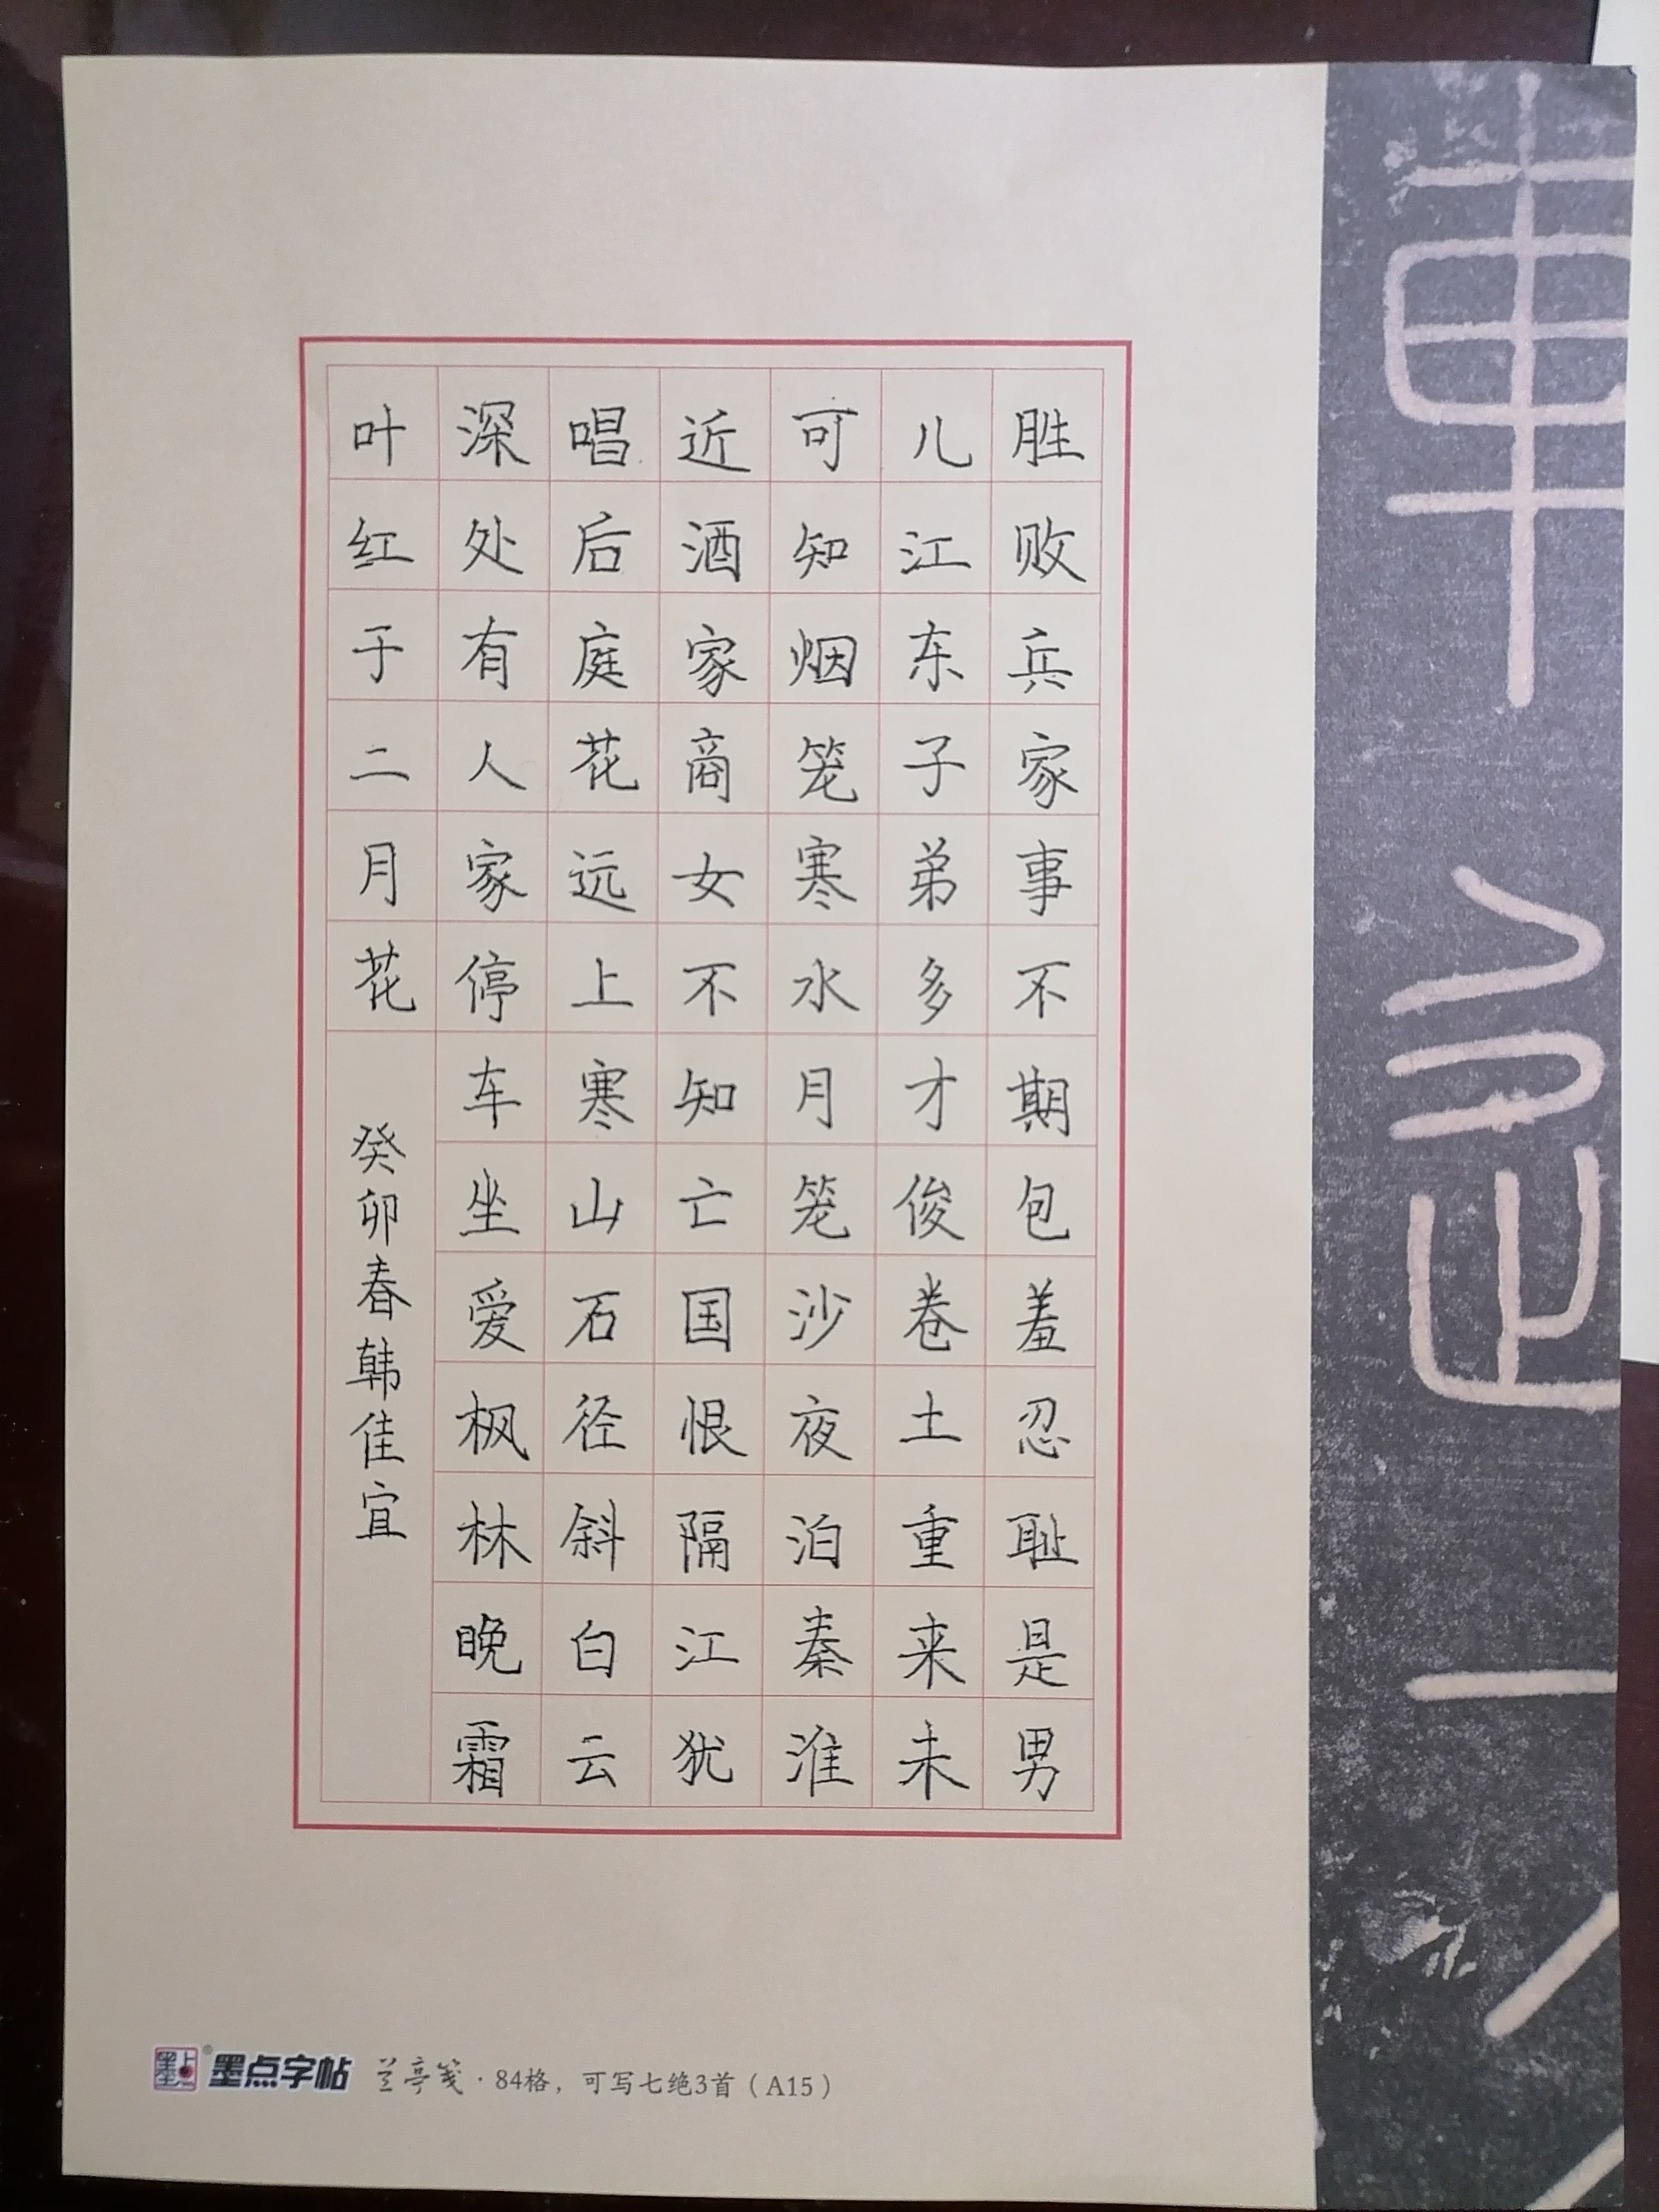 胜败兵家事不期包羞忍耻是男
儿江东子弟多才俊卷土重来未
可知烟笼寒水月笼沙夜泊秦淮
近酒家商女不知亡国恨隔江犹
唱后庭花远上寒山石径斜白云
深处有人家停车坐爱枫林晚霜
叶红于二月花
癸卯春韩佳宜
墨点字帖 兰亭笺·84格，可写七绝3首（A15）